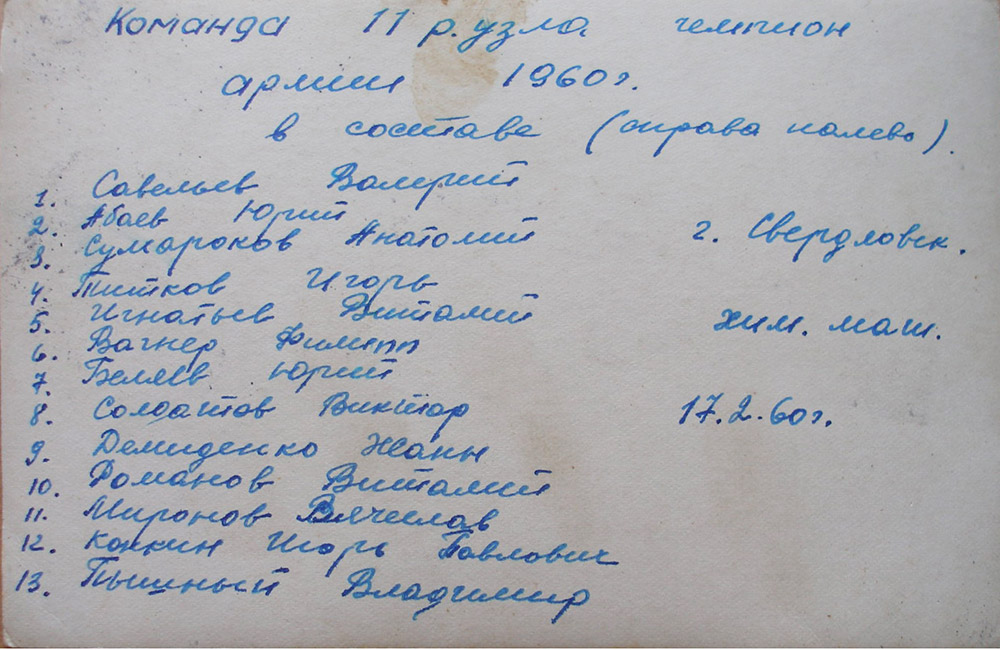 Команда 11 р. узла чемпион
армии 1960г.
в составе (справа налево).
1. Савельев Валерий
2. Абаев Юрий
3. Сумароков Анатолий
г. Свердловск.
4. Титков Игорь
5. Игнатьев Виталий
хим. маш.
6. Вагнер Филипп
7. Беляев Юрий
8. Солдатов Виктор
17.2.60г.
9. Демиденко Жаны
10. Романов Виталий
11. Миронов Вячеслав
12. Игорь Павлович
13. Пышный Владимир